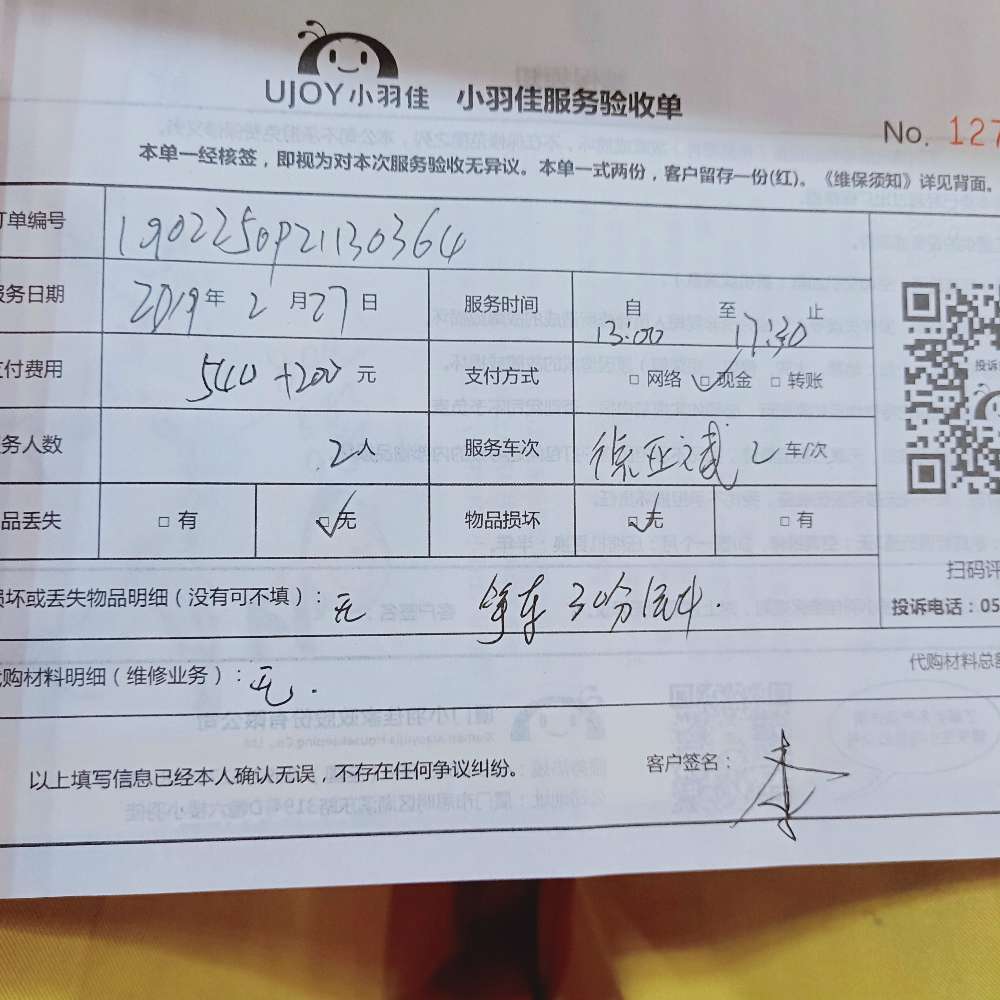 UJOY小羽佳 小羽佳服务验收单
No. 127
本单一经核签，即视为对本次服务验收无异议。本单一式两份，客户留存一份(红)。《维保须知》详见背面。
订单编号 1902250921130364
服务日期 2019年 2月27日 服务时间 自 13:00 至 17:30 止
支付费用 540+200元 支付方式 □网络 □现金 □转账
务人数 2人 服务车次 2车/次
品丢失 □有 □无 物品损坏 □无 □有
损坏或丢失物品明细（没有可不填）：无 30分
代购材料明细（维修业务）：无.
代购材料总额
以上填写信息已经本人确认无误，不存在任何争议纠纷。 客户签名：
投诉
扫码评
投诉电话：05